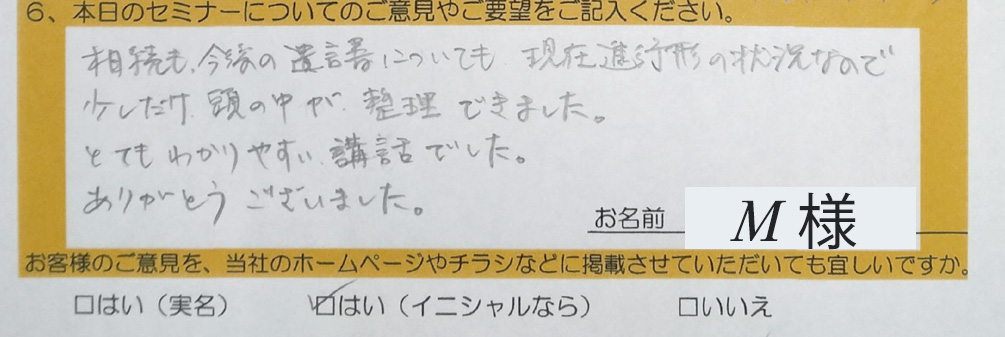 6、本日のセミナーについてのご意見やご要望をご記入ください。
相続も、今後の遺言書についても 現在進行形の状況なので
少しだけ 頭の中が 整理 できました。
とても わかりやすい 講話でした。
ありがとう ございました。
お名前 M 様
お客様のご意見を、当社のホームページやチラシなどに掲載させていただいても宜しいですか。
□はい（実名） ☑はい（イニシャルなら） □いいえ